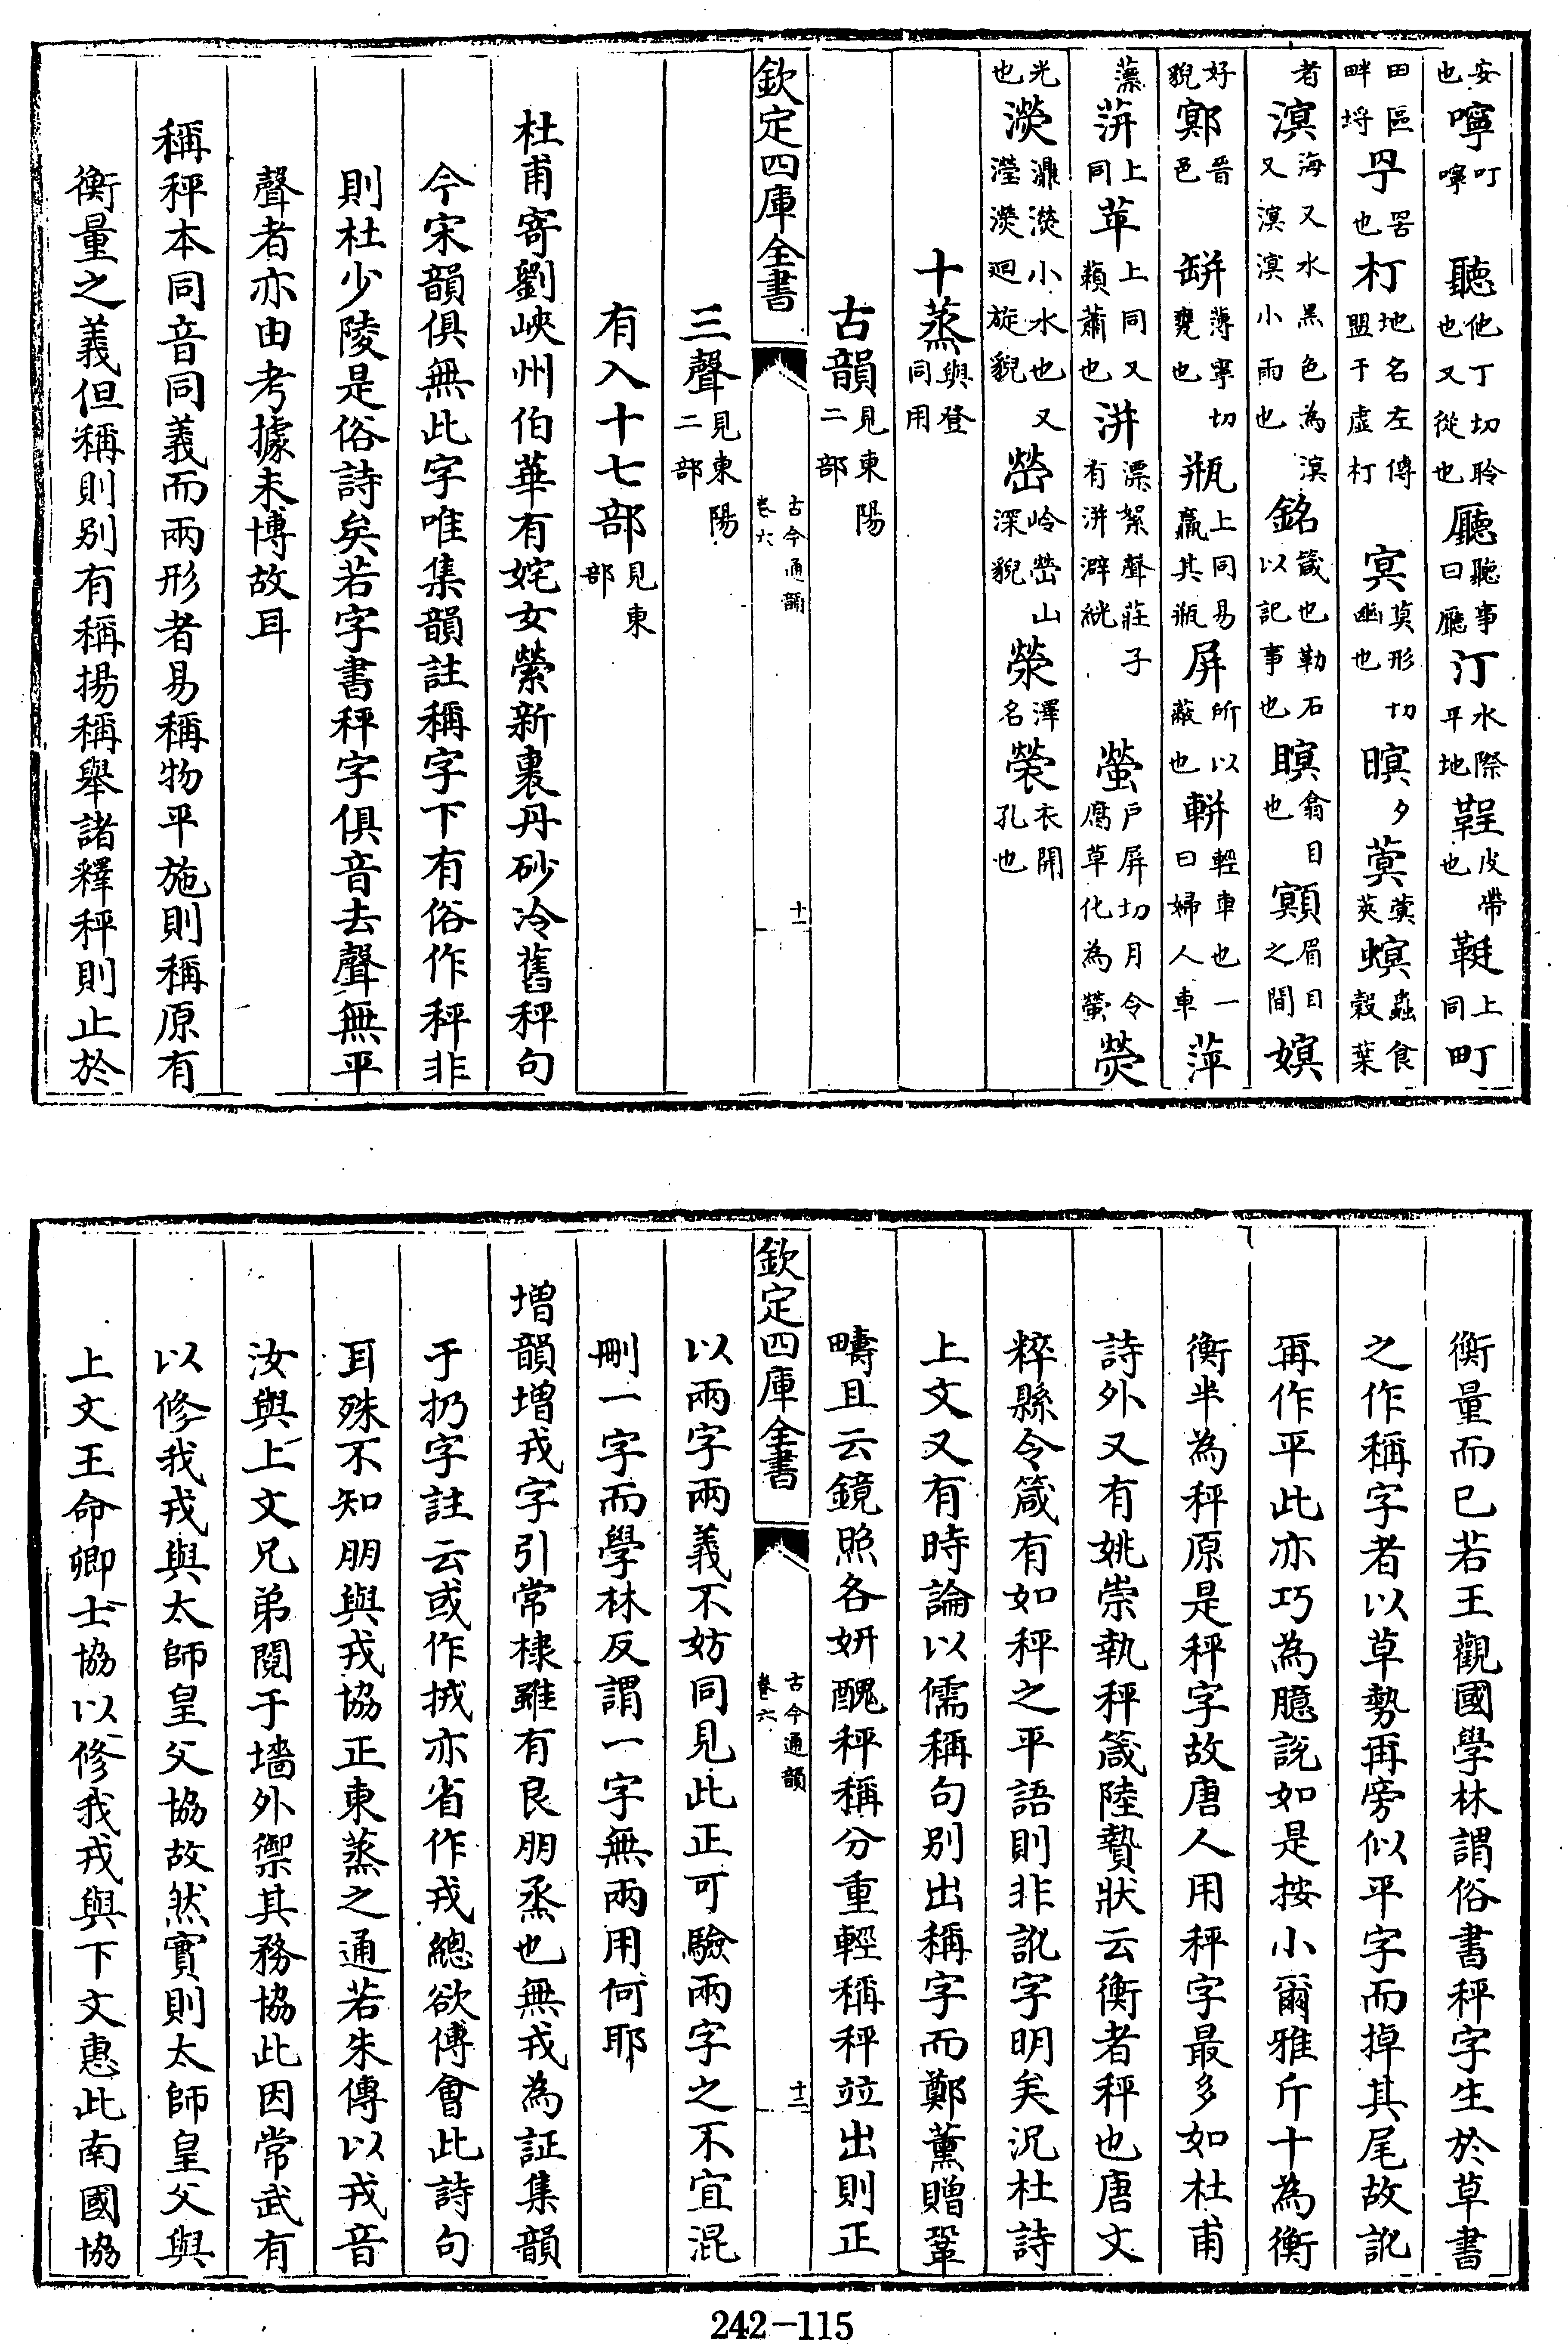 安也嚀叮嚀聽他丁切聆也又從也廳聽事曰廳汀水際平地鞓皮帶也鞓上同町
田區畔埒㝉罟也朾地名左傳盟于虛朾冥莫形切幽也暝夕蓂蓂莢螟蟲食穀葉
者溟海又水黑色為溟又溟溟小雨也銘箴也勒石以記事也瞑翕目也顭眉目之間嫇
好貌鄍晉邑缾薄寧切甖也瓶上同易羸其瓶屏所以蔽也軿輕車也一曰婦人車萍
薸蓱上同苹上同又藾蕭也洴漂絮聲莊子有洴澼絖螢戶屏切月令腐草化為螢熒
光也濙濎濙小水也又瀅濙迴旋貌嶜岭嶜山深貌滎澤名褮衣開孔也
十蒸與登同用
古韻見東陽二部
欽定四庫全書
古今通韻卷六
十一
三聲見東陽二部
有入十七部見東部
杜甫寄劉峽州伯華有姹女縈新裹丹砂冷舊秤句
今宋韻俱無此字唯集韻註稱字下有俗作秤非
則杜少陵是俗詩矣若字書秤字俱音去聲無平
聲者亦由考據未博故耳
稱秤本同音同義而兩形者易稱物平施則稱原有
衡量之義但稱則別有稱揚稱舉諸釋秤則止於
衡量而已若王觀國學林謂俗書秤字生於草書
之作稱字者以草勢再旁似平字而掉其尾故訛
再作平此亦巧為臆説如是按小爾雅斤十為衡
衡半為秤原是秤字故唐人用秤字最多如杜甫
詩外又有姚崇執秤箴陸贄狀云衡者秤也唐文
粹縣令箴有如秤之平語則非訛字明矣況杜詩
上文又有時論以儒稱句別出稱字而鄭薰贈鞏
疇且云鏡照各妍醜秤稱分重輕稱秤竝出則正
欽定四庫全書
古今通韻卷六
十二
以兩字兩義不妨同見此正可驗兩字之不宜混
刪一字而學林反謂一字無兩用何耶
增韻增戎字引常棣雖有良朋烝也無戎為証集韻
于扔字註云或作㧡亦省作戎總欲傅會此詩句
耳殊不知朋與戎協正東蒸之通若朱傳以戎音
汝與上文兄弟鬩于墻外禦其務協此因常武有
以修我戎與太師皇父協故然實則太師皇父與
上文王命卿士協以修我戎與下文惠此南國協
242-115